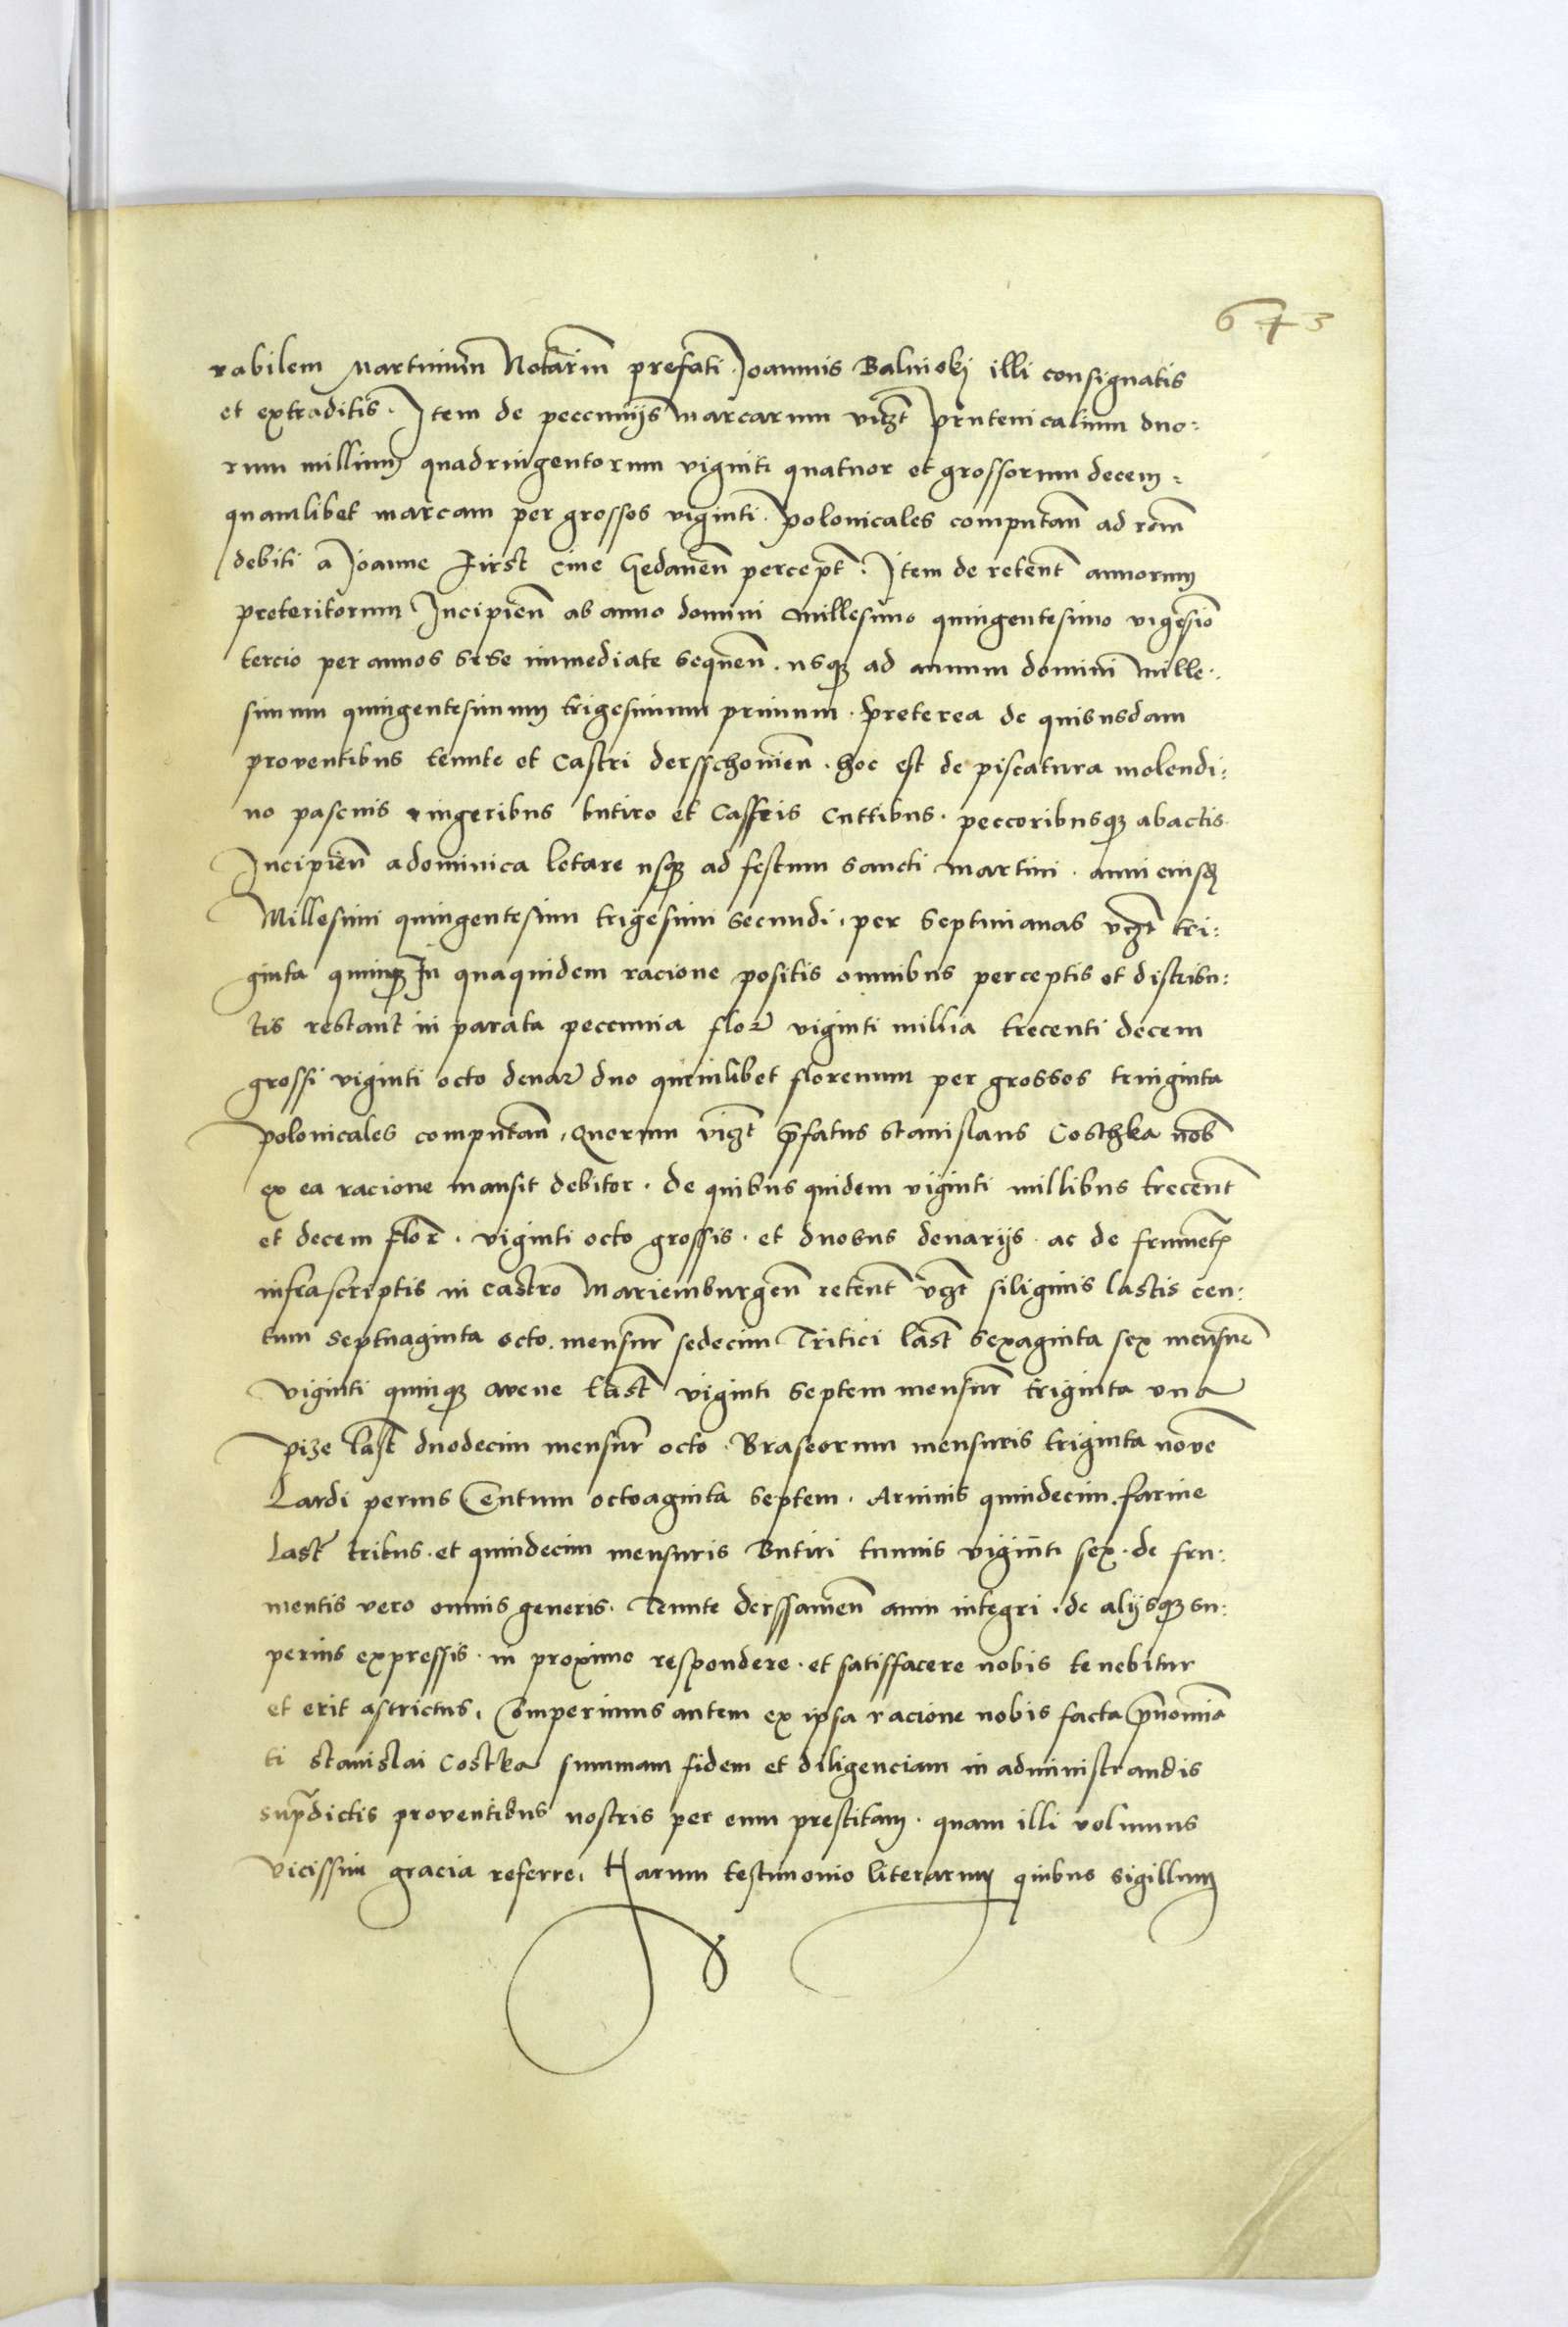 673
rabilem Martinum Notariū prefati Joannis Balinski illi consignatis
et extraditis. Item de peccunijs marcarum vizt prutenicalium duo:
rum millium quadringentorum viginti quatuor et grossorum decem:
quamlibet marcam per grossos viginti polonicales computan̄ ad rōm
debiti a Joanne First cive Gedanen̄ percept̄. Item de retent̄ annorum
preteritorum Incipien̄ ab anno domini Millesimo quingentesimo vigesiō
tercio per annos sese immediate sequen̄. usq ad annum domini Mille:
simum quingentesimum trigesimum primum. Preterea de quibusdam
proventibus tennte et Castri dersschovien̄. hoc est de piscatura molendi:
no pascuis iugeribus butiro et Casseis Cuttibus. peccoribusq abactis.
Incipien̄ a dominica letare usq ad festum sancti Martini. anni eiusd
Millesimi quingentesimi trigesimi secundi. per septimanas vzt tri:
ginta quinq In quaquidem racione positis omnibus perceptis et distribu:
tis restant in parata peccunia flor viginti millia trecenti decem
grossi viginti octo denar duo quemlibet florenum per grossos triginta
polonicales computan̄. Quorum vizt p̄fatus Stanislaus Costhka nob̄
ex ea racione mansit debitor. de quibus quidem viginti millibus trecent̄
et decem flor̄. viginti octo grossis. et duobus denarijs. ac de frument
infrascriptis in castro Mariemburgen̄ retent̄ vzt siliginis lastis cen:
tum septuaginta octo. mensur̄ sedecim Tritici last̄ sexaginta sex mensur̄
viginti quinq avene last̄ viginti septem mensur̄ triginta una
pize last̄ duodecim mensur̄ octo. Braseorum mensuris triginta novē
Lardi pernis Centum octoaginta septem. Arvinis quindecim. farine
last̄ tribus. et quindecim mensuris Butiri tunnis viginti sex. de fru:
mentis vero omnis generis. Tennte derssavien̄ anni integri. de alijsq su:
perius expressis. in proximo respondere. et satisfacere nobis tenebitur
et erit astrictus. Comperimus autem ex ipsa racione nobis facta p̄nomina
ti Stanislai Costka summam fidem et diligenciam in administrandis
sup̄dictis proventibus nostris per eum prestitam. quam illi volumus
vicissim gracia referre. Harum testimonio literarum quibus sigillum